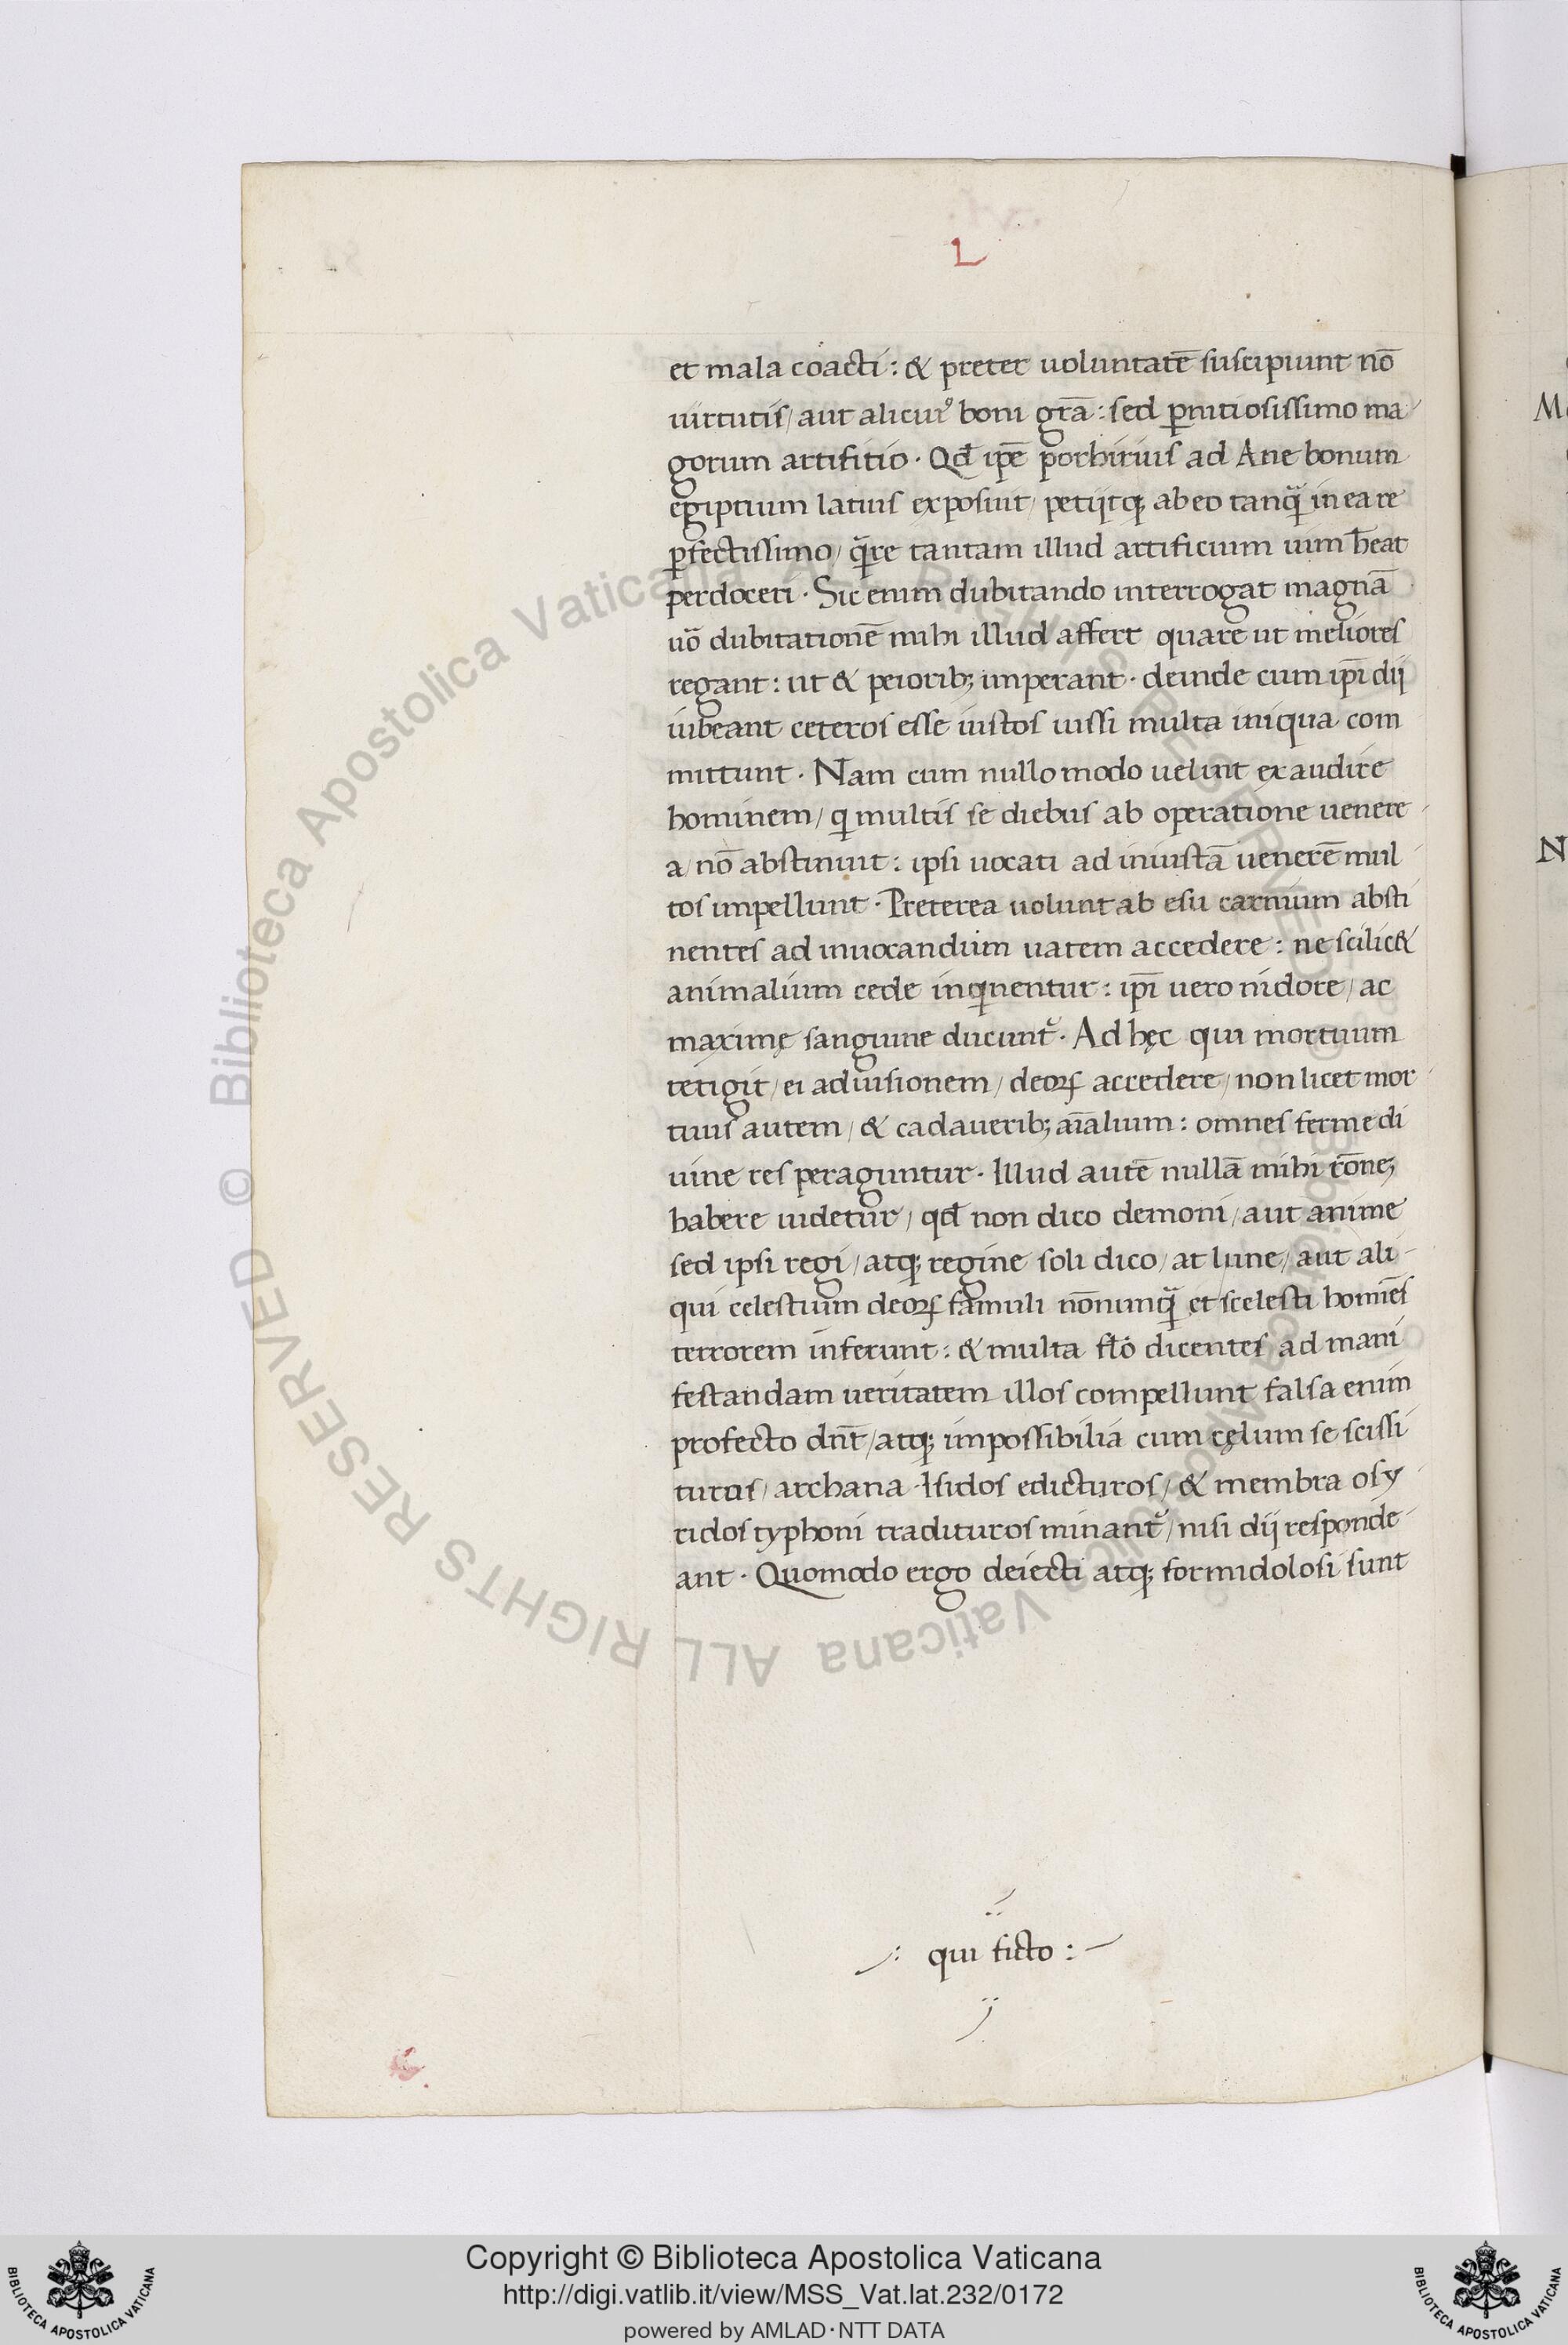 L
et mala coacti : & preter uoluntatē suscipiunt nō
uirtutis / aut alicuiꝰ boni grā : sed ꝑnitiosissimo ma
gorum artifitio · Qd̄ ipē porhirius ad Ane bonum
egiptium latius exposuit / petijtqꝫ ab eo tanq̃ in ea re
ꝑfectissimo / q̃re tantam illud artificium uim h̄eat
perdoceri · Sic enim dubitando interrogat magnā
uō dubitationē mihi illud affert quare ut meliores
regant : ut & peioribꝫ imperant · deinde cum ip̄i dij
iubeant ceteros esse iustos iussi multa iniqua com
mittunt · Nam cum nullo modo uelint exaudire
hominem / qi multis se diebus ab operatione uenere
a / nō abstinuit : ipsi uocati ad iniustā uenerē mul
tos impellunt · Preterea uolunt ab esu carnium absti
nentes ad inuocandum uatem accedere : ne scilic&
animalium cede inqinentur : ip̄i uero nidore / ac
maximę sanguine ducunt᷑ · Ad hęc qui mortuum
tetigit / ei aduisionem / deoꝝ accedere / non licet mor
tuis autem / & cadaueribꝫ aīalium : omnes ferme di
uine res peraguntur · Illud autē nullā mihi rōneꝫ
habere uidetur / qd̄ non dico demoni / aut anime
sed ipsi regi / atqꝫ regine soli dico / at lune / aut ali
qui celestium deoꝝ famuli nōnunq̃ et scelesti homīes
terrorem inferunt : & multa fl̄o dicentes ad mani
festandam ueritatem illos compellunt falsa enim
profecto dn̄t / atqꝫ impossibilia cum cęlum se scissi
turos / archana Isidos edicturos / & membra osy
ridos typhoni tradituros minant᷑ / nisi dij responde
ant · Quomodo ergo deiecti atqꝫ formidolosi sunt
qui ficto :
M
N
© Biblioteca Apostolica Vaticana ALL RIGHTS RESERVED © Biblioteca Apostolica Vaticana ALL RIGHTS RESERVED
BIBLIOTECA APOSTOLICA VATICANA
Copyright © Biblioteca Apostolica Vaticana
http://digi.vatlib.it/view/MSS_Vat.lat.232/0172
powered by AMLAD·NTT DATA
BIBLIOTECA APOSTOLICA VATICANA